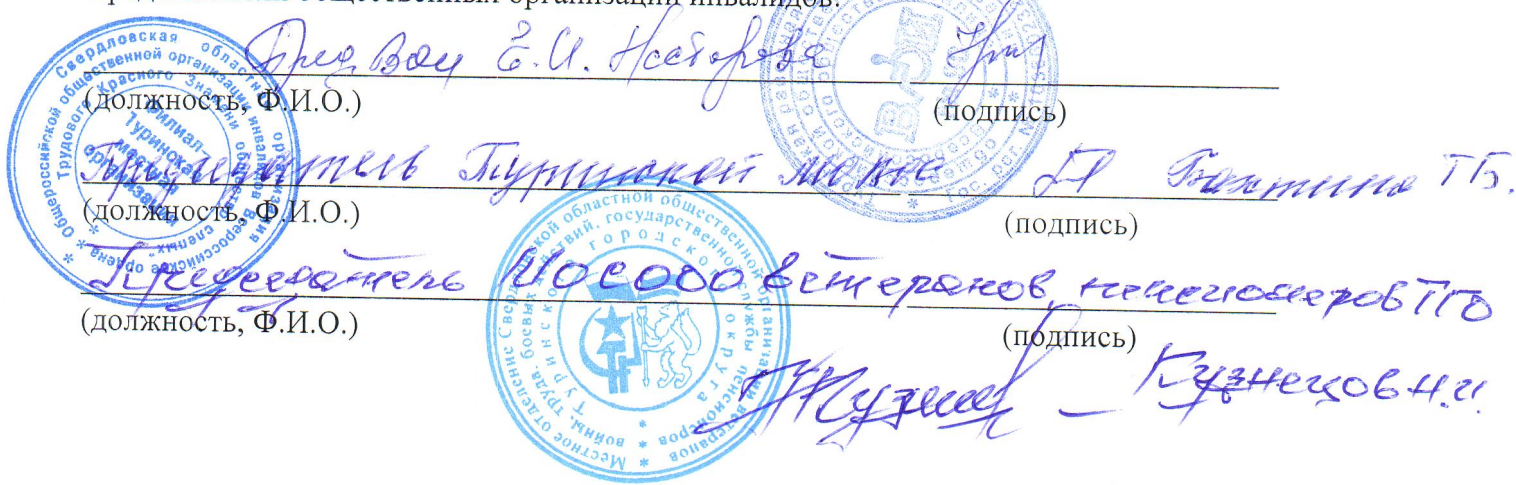 общественных организаций инвалидов:
Пред Вои Е.И. Нестерова
(должность, Ф.И.О.) (подпись)
Председатель Туринской Бахтина Т.Б.
(должность, Ф.И.О.) (подпись)
Председатель ветеранов, пенсионеров ТГО
(должность, Ф.И.О.) (подпись)
Кузнецов Н.И.
Свердловская областная организация
Общероссийской общественной организации инвалидов Всероссийское ордена
Трудового Красного Знамени общество слепых
филиал-
Туринская
местная
организация
ВОИ
Местное отделение Свердловской областной общественной организации ветеранов
войны, труда, боевых действий, государственной службы пенсионеров
Туринского городского округа